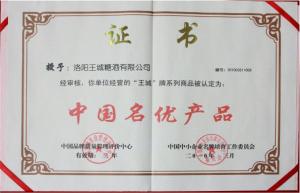 证书
授予：洛阳王城糖酒有限公司
经审核，你单位经营的“王城”牌系列商品被认定为：
中国名优产品
中国品牌质量管理评价中心
中国中小企业名牌培育工作委员会
有效期：年
二〇一〇年 月